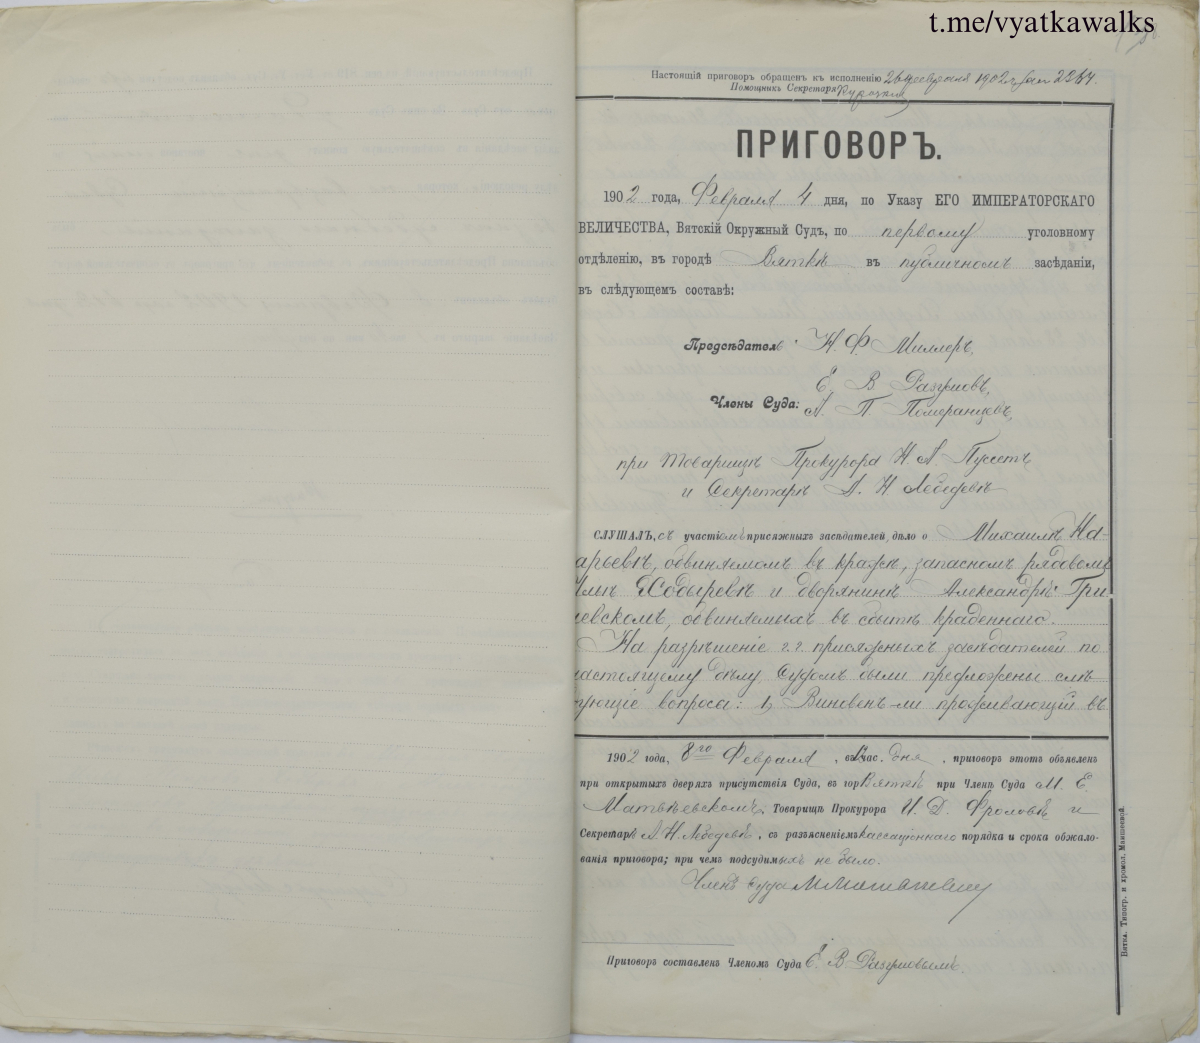 t.me/vyatkawalks
Настоящій приговоръ обращенъ къ исполненію 26 февраля 1902 г. за №
Помощникъ Секретаря
ПРИГОВОРЪ.
1902 года, Февраля 4 дня, по Указу ЕГО ИМПЕРАТОРСКАГО
ВЕЛИЧЕСТВА, Вятскій Окружный Судъ, по первому уголовному
отдѣленію, въ городѣ Вяткѣ въ публичномъ засѣданіи,
въ слѣдующемъ составѣ:
Предсѣдатель Н. Ф. Миллеръ,
Е. В. Разумовъ,
Члены Суда: А. П. Померанцевъ,
при Товарищѣ Прокурора Н. А. Пуссетъ
и Секретарѣ А. Н. Лебедевѣ
СЛУШАЛЪ, съ участіемъ присяжныхъ засѣдателей, дѣло о Михаилѣ
обвиняемомъ въ кражѣ, запасномъ рядовомъ
Ходыревѣ и дворянинѣ Александрѣ Гри
евскомъ, обвиняемыхъ въ сбытѣ краденнаго.
На разрѣшеніе г.г. присяжныхъ засѣдателей по
настоящему дѣлу Судомъ были предложены слѣ
дующіе вопроса: 1, Виновенъ-ли проживающій въ
1902 года, 8го Февраля, въ 12 час. дня, приговоръ этотъ объявленъ
при открытыхъ дверяхъ присутствія Суда, въ гор Вяткѣ при Членѣ Суда М. Е.
Матвѣевскомъ, Товарищѣ Прокурора И. Д. Фроловѣ и
Секретарѣ А. Н. Лебедевѣ, съ разъясненіемъ кассаціоннаго порядка и срока обжало-
ванія приговора; при чемъ подсудимыхъ не было.
Членъ Суда
Приговоръ составленъ Членомъ Суда Е. В. Разумовымъ.
Вятка. Типогр. и хромол. Маишеевой.